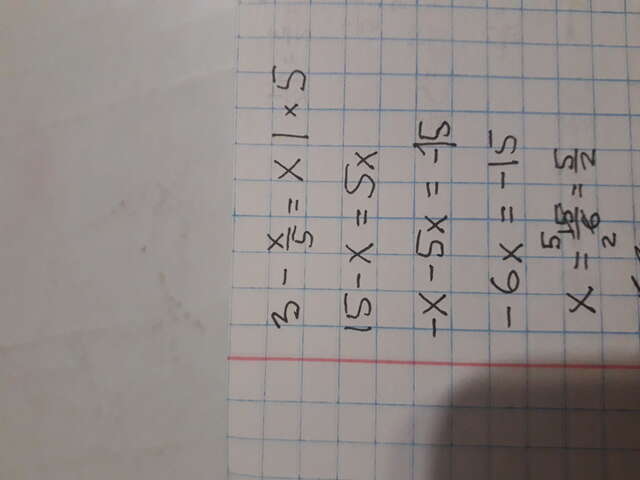 3 - x/5 = x | × 5
15 - x = 5x
-x - 5x = -15
-6x = -15
x = 15/6 = 5/2
5
2